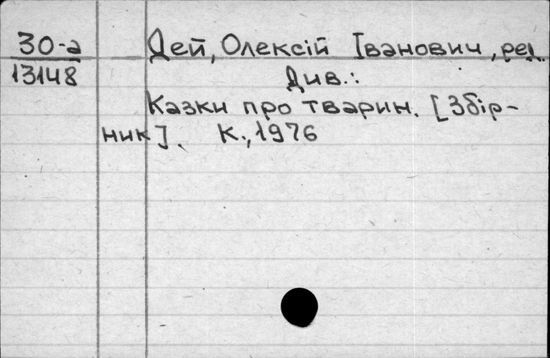 30-а Дей, Олексій Іванович, ред.
13148 Див.:
Казки про тварин. [Збір-
ник]. К., 1976